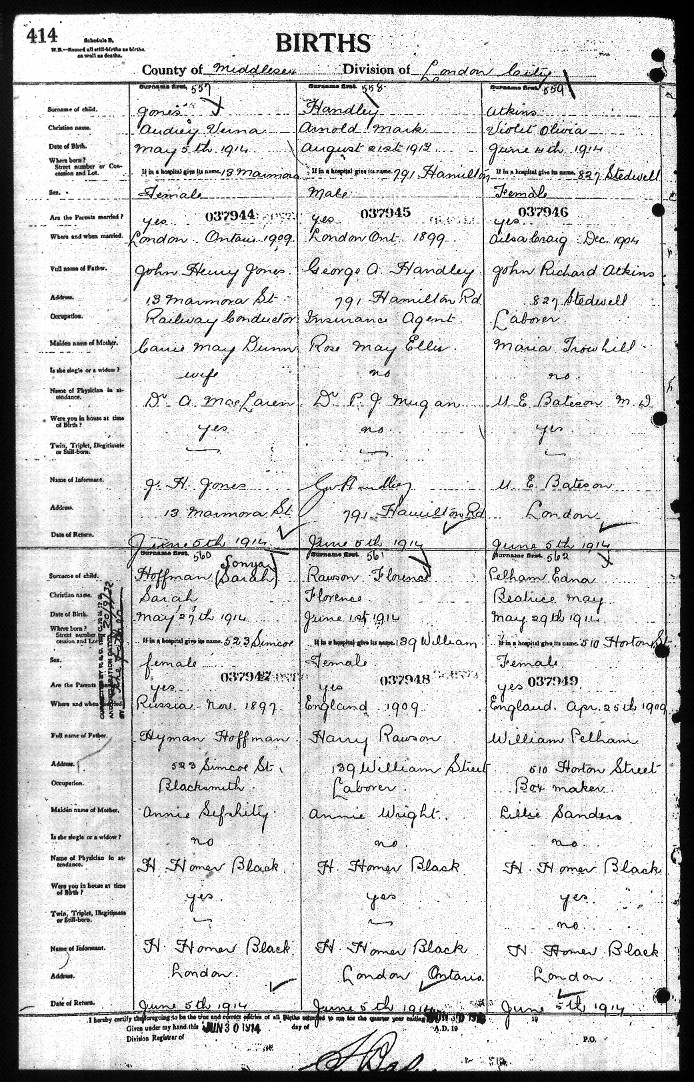 414
Schedule B.
N.B.—Record all still-births as births.
as well as deaths.
BIRTHS
County of Middlesex Division of London City
Surname first. 557 Surname first. 558 Surname first. 559
Surname of child. Jones Handley Atkins
Christian name. Audrey Verna Arnold Mark Violet Olivia
Date of Birth. May 5th 1914 August 21st 1912 June 4th 1914
Where born?
Street number or Con-
cession and Lot. If in a hospital give its name. 13 Marmora If in a hospital give its name. 791 Hamilton If in a hospital give its name. 827 Stedwell
Sex. Female Male Female
037944 037945 037946
Are the Parents married? yes yes yes
Where and when married. London Ontario 1909 London Ont. 1899 Ailsa Craig Dec. 1904
Full name of Father. John Henry Jones George A. Handley John Richard Atkins
Address. 13 Marmora St 791 Hamilton Rd 827 Stedwell
Occupation. Railway Conductor Insurance Agent Laborer
Maiden name of Mother. Carrie May Dunn Rose May Ellis Maria Trowhill
Is she single or a widow? wife no no
Name of Physician in at-
tendance. Dr. A. MacLaren Dr P. J. Mugan U E Bateson M D
Were you in house at time
of Birth? yes no yes
Twin, Triplet, Illegitimate
or Still-born.
Name of Informant. J. H. Jones Handley U. E. Bateson
Address. 13 Marmora St. 791 Hamilton Rd London
Date of Return. June 5th 1914 June 5th 1914 June 5th 1914
Surname first. 560 Surname first. 561 Surname first. 562
Sonya
Surname of child. Hoffman (Sarah) Rawson Florence Pelham Edna
Christian name. Sarah Florence Beatrice May
Date of Birth. May 27th 1914 June 1st 1914 May 29th 1914
Where born?
Street number
cession and Lot. If in a hospital give its name. 523 Simcoe If in a hospital give its name. 139 William If in a hospital give its name. 510 Horton St
Sex. female Female Female
037947 037948 037949
Are the Parents yes yes yes
Where and when married. Russia Nov. 1897 England 1909 England. Apr. 25th 1909
Full name of Father. Hyman Hoffman Harry Rawson William Pelham
Address. 523 Simcoe St. 139 William Street 510 Horton Street
Occupation. Blacksmith Laborer Box maker
Maiden name of Mother. Annie Sefshity Annie Wright Lillie Sanders
Is she single or a widow? no no no
Name of Physician in at-
tendance. H. Homer Black H. Homer Black H. Homer Black
Were you in house at time
of Birth? yes. yes yes
Twin, Triplet, Illegitimate
or Still-born. no
Name of Informant. H. Homer Black H Homer Black H Homer Black
Address. London London Ontario London
Date of Return. June 5th 1914 June 5th 1914 June 5th 1914
I hereby certify the foregoing to be the true and correct entries of all Births returned to me for the quarter year ending 19
Given under my hand this JUN 30 1914 day of A.D. 19
Division Registrar of P.O.